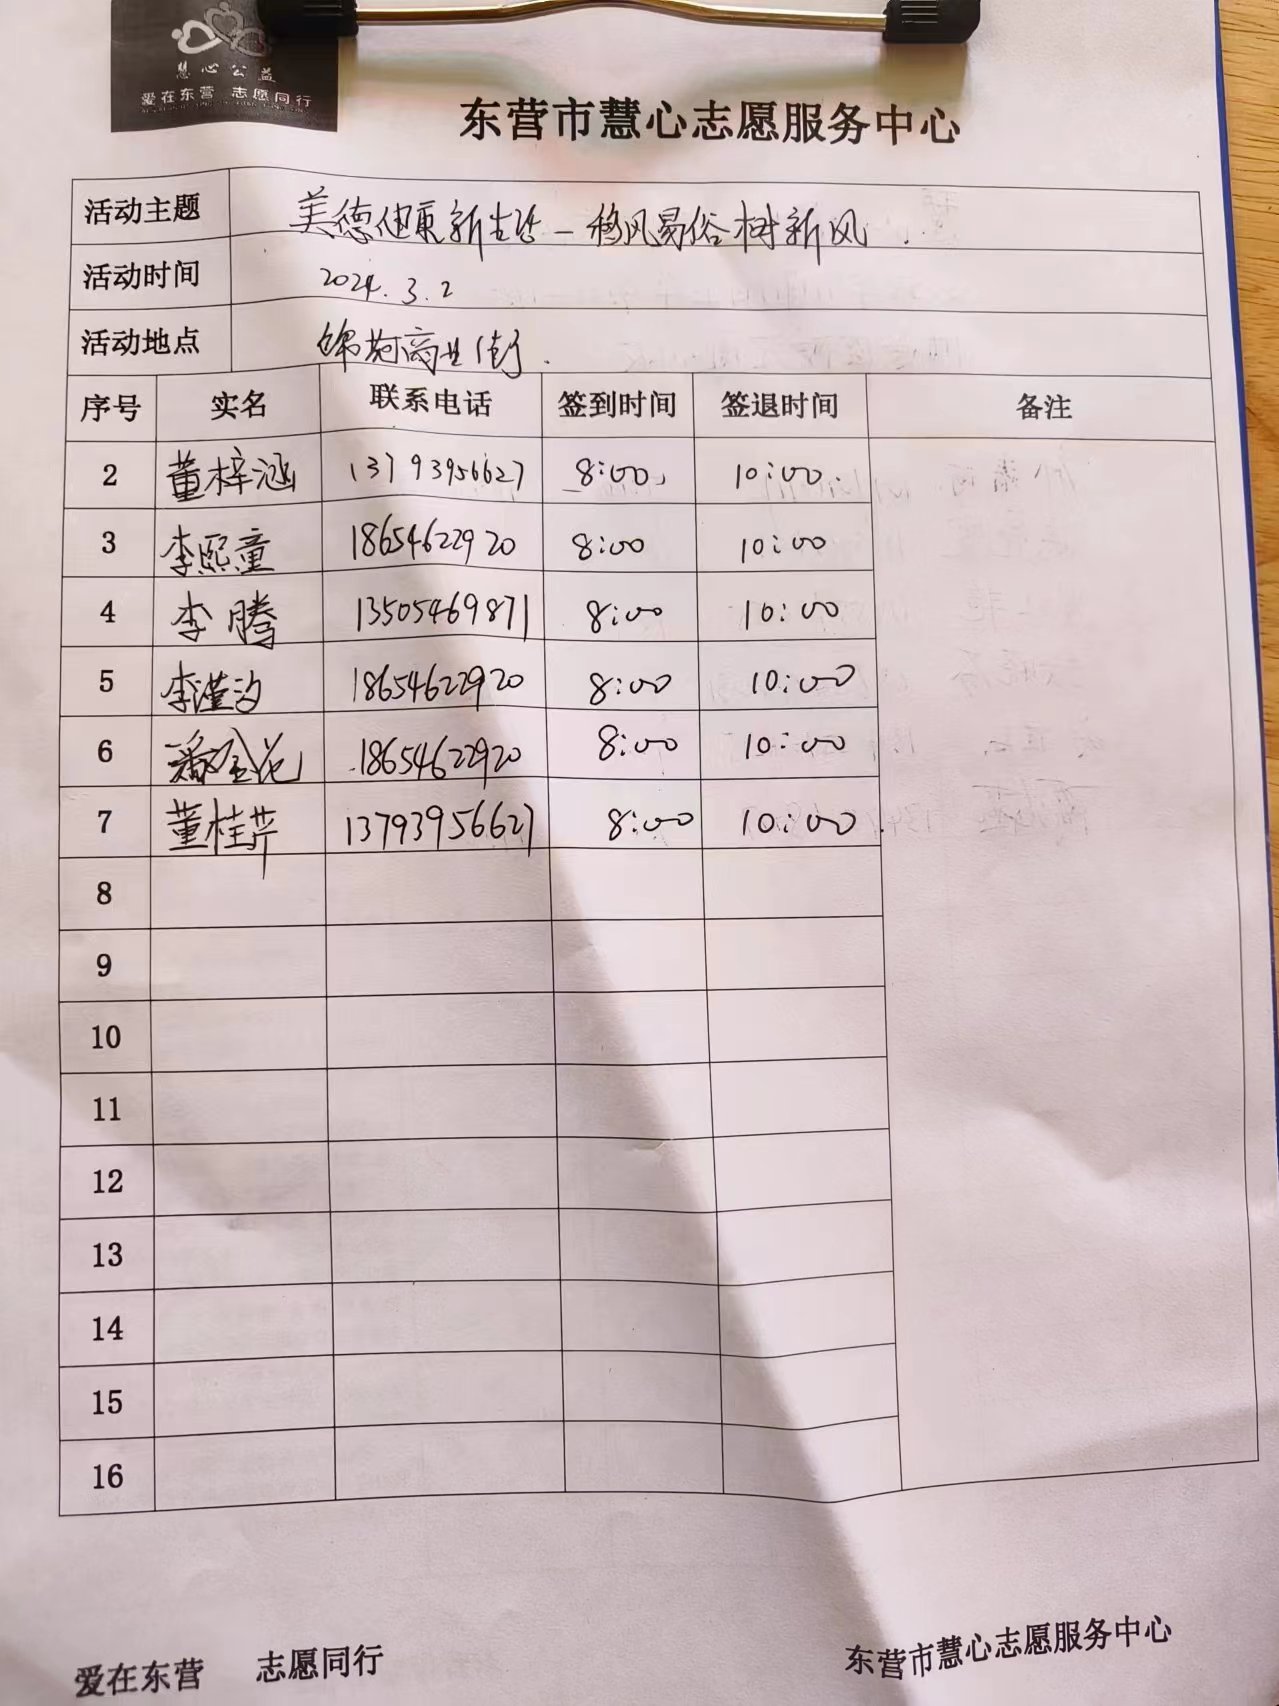 慧心公益
爱在东营 志愿同行
东营市慧心志愿服务中心
活动主题 美德健康新生活－移风易俗树新风.
活动时间 2024.3.2
活动地点 锦苑商业街.
序号 实名 联系电话 签到时间 签退时间 备注
2 董梓涵 13793956627 8:00 10:00
3 李熙童 18654622920 8:00 10:00
4 李腾 13505469871 8:00 10:00
5 李谨汐 18654622920 8:00 10:00
6 潘金花 18654622920 8:00 10:00
7 董桂芹 13793956627 8:00 10:00
8
9
10
11
12
13
14
15
16
爱在东营 志愿同行
东营市慧心志愿服务中心